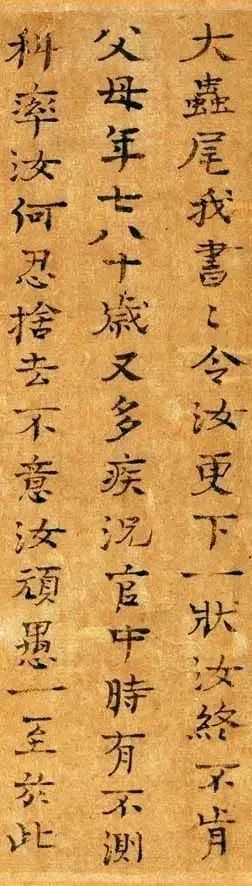 大蟲尾我書〻令汝更下一狀汝終不肯
父母年七八十歲又多疾況官中時有不測
科率汝何忍捨去不意汝頑愚一至於此